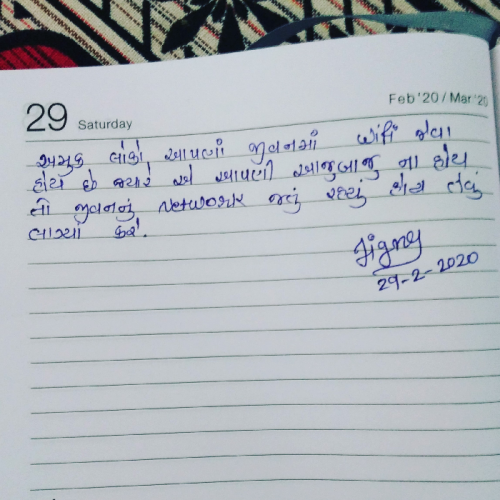 Feb '20 / Mar '20
29 Saturday
અમુક લોકો આપણાં જીવનમાં wifi જેવા
હોય છે જ્યારે એ આપણી આજુબાજુ ના હોય
તો જીવનનું Network જતું રહ્યું હોય તેવું
લાગ્યાં કરે.
Jigney
29-2-2020